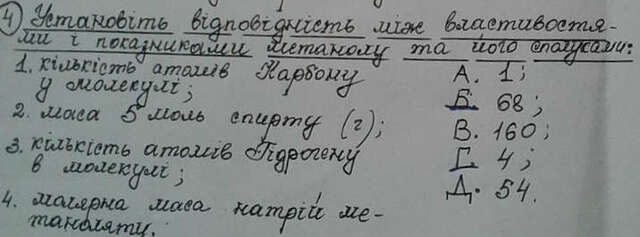 4 Установіть відповідність між властивостя-
ми і показниками метанолу та його сполуками:
1. кількість атомів Карбону
у молекулі;
2. маса 5 моль спирту (г);
3. кількість атомів Гідрогену
в молекулі;
4. молярна маса натрій ме-
таноляту.
А. 1;
Б. 68;
В. 160;
Г. 4;
Д. 54.